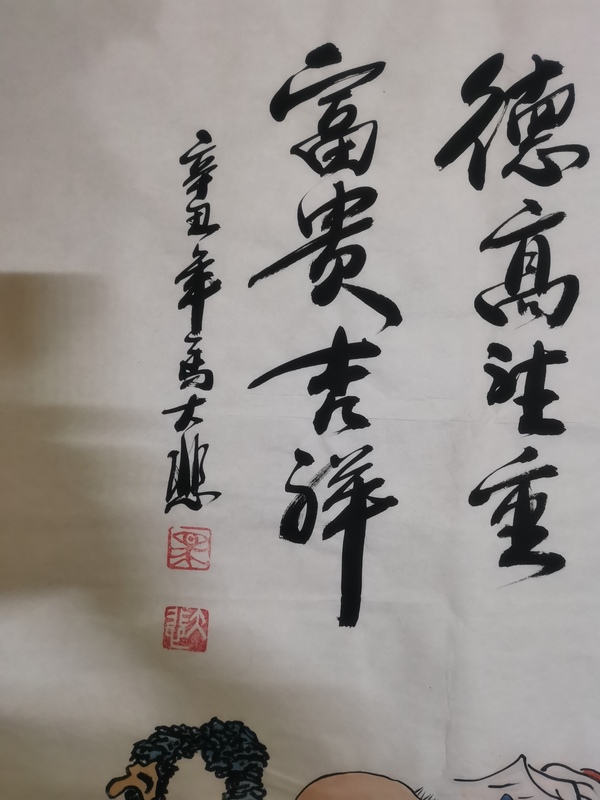 德高望重
富贵吉祥
辛丑年马大悲
大悲